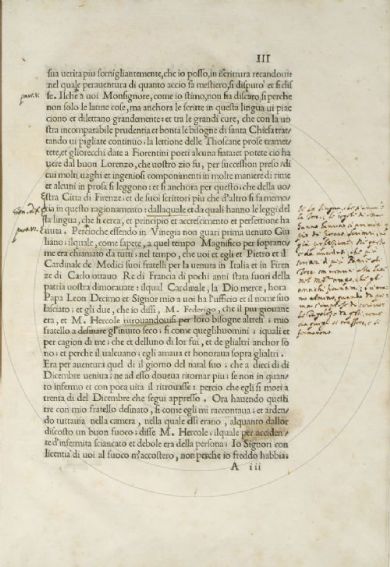 III
sua uerita piu somigliantemente, che io posso, in iscrittura recandoui:
nel quale perauentura di quanto accio fa mestiero, si disputò et si dis/
se. Ilche a uoi Monsignore, come io stimo, non fia discaro, si perche
non solo le latine cose, ma anchora le scritte in questa lingua ui piac/
ciono et dilettano grandemente: et tra le grandi cure, che con la uo
stra incomparabile prudentia et bontà le bisogne di santa Chiesa trat/
tando ui pigliate continuo, la lettione delle Thoscane prose tramet/
tete, et gliorecchi date a Fiorentini poeti alcuna fiata: et potete ciò ha
uere dal buon Lorenzo, che uostro zio fu, per succession preso, di
cui molti uaghi et ingeniosi componimenti in molte maniere di rime
et alcuni in prosa si leggono: et si anchora per questo, che della uo/
stra Citta di Firenze, et de suoi scrittori piu che d'altro si fa memo/
ria in questo ragionamento: dallaquale et da quali hanno le leggi del
la lingua, che si cerca, et principio et accrescimento et perfettione ha
uuta. Percioche essendo in Vinegia non guari prima uenuto Giu
liano: ilquale, come sapete, a quel tempo Magnifico per sopranno/
me era chiamato da tutti: nel tempo, che uoi et egli et Pietro et il
Cardinale de Medici suoi fratelli per la uenuta in Italia et in Firen
ze di Carlo ottauo Re di Francia di pochi anni stata fuori della
patria uostra dimorauate: ilqual Cardinale, la Dio merce, hora
Papa Leon Decimo et Signor mio a uoi ha l'ufficio et il nome suo
lasciato: et gli due, che io dissi, M. Federigo, che il piu giouane
era, et M. Hercole ritrouandouisi per loro bisogne altresi: mio
fratello a desinare gl'inuitò seco: si come quegli huomini: iquali et
per cagion di me: che et dell'uno di lor fui, et de gli altri anchor so/
no: et perche il ualeuano: egli amaua et honoraua sopra gli altri.
Era per auentura quel dì il giorno del natal suo: che a dieci dì di
Dicembre ueniua: ne ad esso doueua ritornar piu: se non in quan/
to infermo et con poca uita il ritrouasse: percio che egli si morì a
trenta dì del Dicembre che seguì appresso. Ora hauendo questi
tre con mio fratello desinato, si come egli mi raccontaua: et arden/
do tuttauia nella camera, nella quale essi erano, alquanto dallor
discosto un buon fuoco: disse M. Hercole: ilquale per acciden/
te d'infermita sciancato et debole era della persona: Io Signori con
licentia di uoi al fuoco m'accosterò, non perche io freddo habbia:
A iii